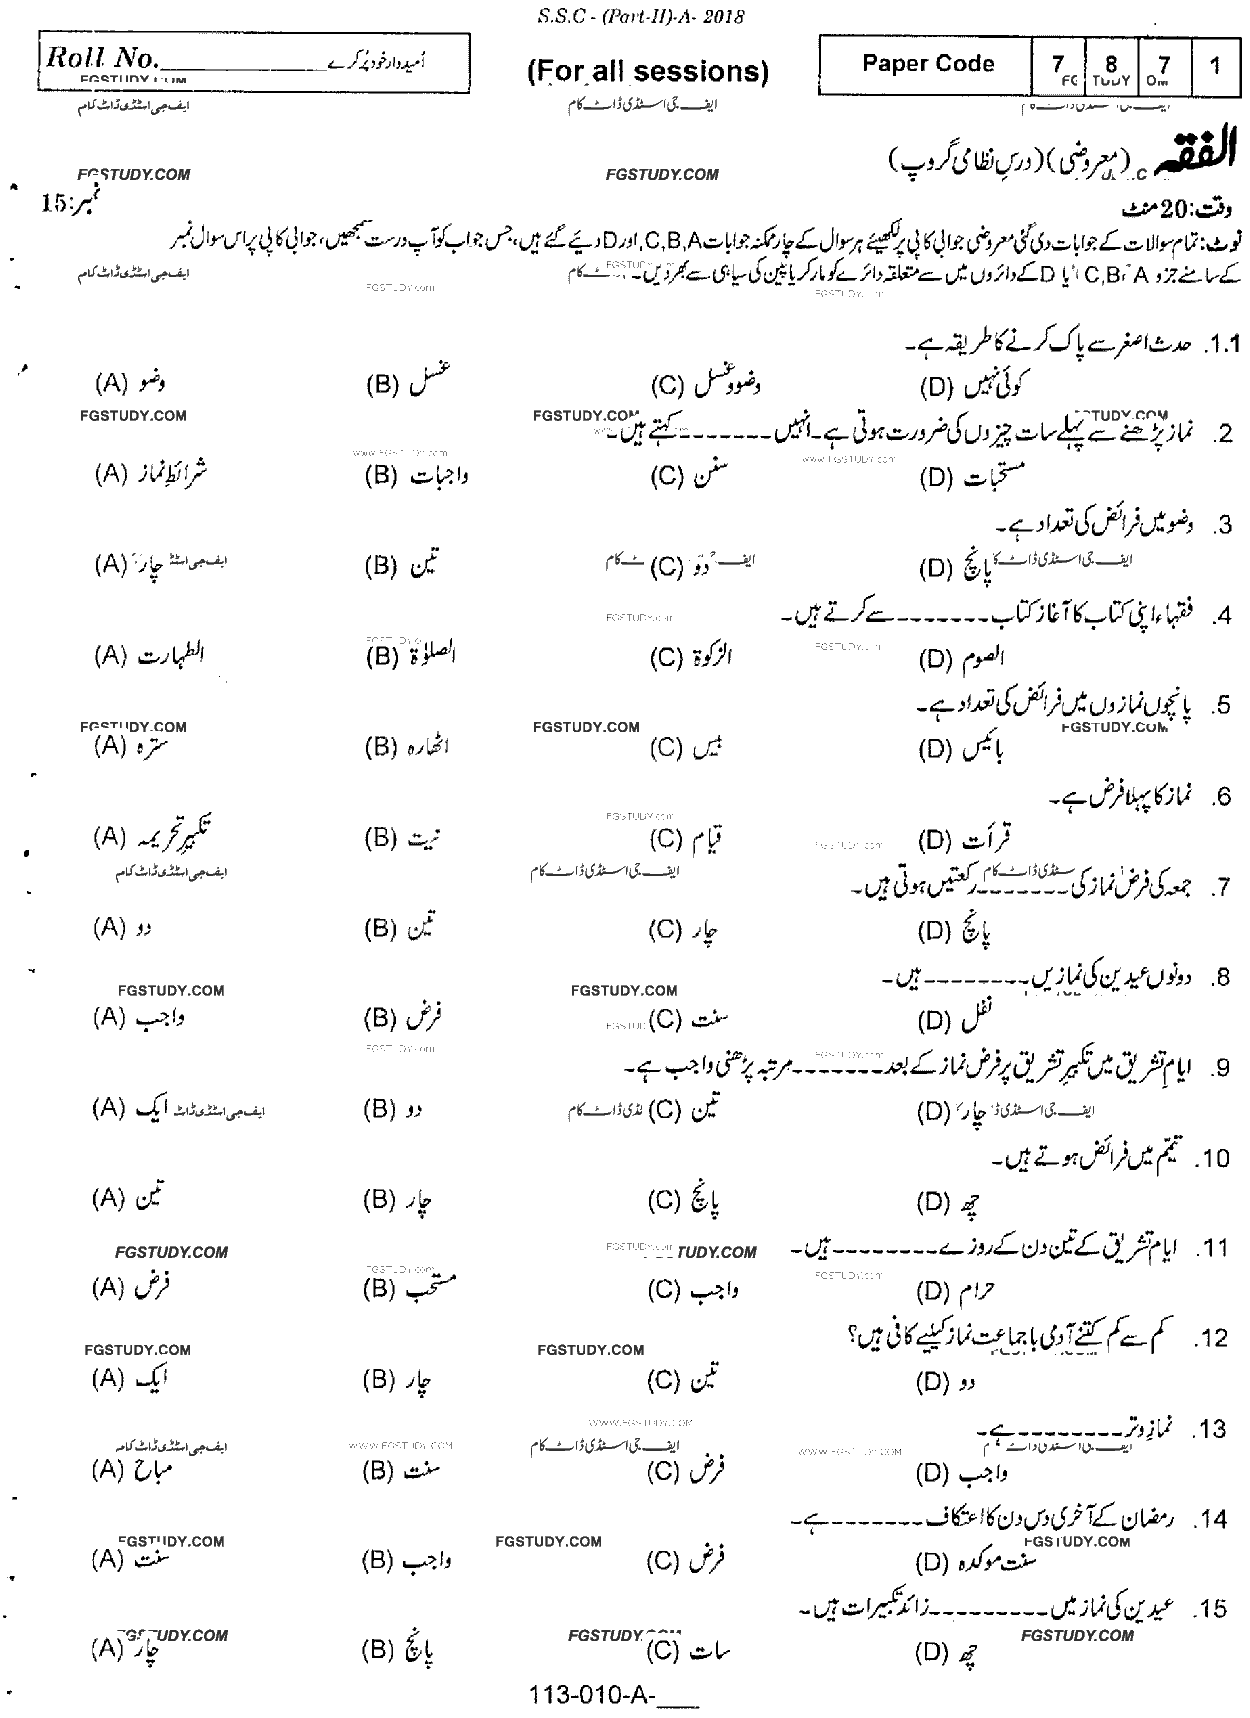 S.S.C - (Part-II)-A- 2018
Roll No.____________ اُمیدوار خود پُر کرے
(For all sessions)
Paper Code 7 8 7 1
الفقه (معروضی) (درسِ نظامی گروپ)
وقت: 20 منٹ
نمبر: 15
نوٹ: تمام سوالات کے جوابات دی گئی معروضی جوابی کاپی پر لکھیئے ہر سوال کے چار ممکنہ جوابات C,B,A, اور D دیئے گئے ہیں، جس جواب کو آپ درست سمجھیں، جوابی کاپی پر اس سوال نمبر
کے سامنے جزو C,B, A یا D کے دائروں میں سے متعلقہ دائرے کو مارکر یا پین کی سیاہی سے بھر دیں۔
1.1. حدث اصغر سے پاک کرنے کا طریقہ ہے۔
(A) وضو (B) غسل (C) وضو و غسل (D) کوئی نہیں
2. نماز پڑھنے سے پہلے سات چیزوں کی ضرورت ہوتی ہے۔ انہیں ------- کہتے ہیں۔
(A) شرائطِ نماز (B) واجبات (C) سنن (D) مستحبات
3. وضو میں فرائض کی تعداد ہے۔
(A) چار (B) تین (C) دو (D) پانچ
4. فقہاء اپنی کتاب کا آغاز کتاب -------- سے کرتے ہیں۔
(A) الطہارت (B) الصلوٰۃ (C) الزکوۃ (D) الصوم
5. پانچوں نمازوں میں فرائض کی تعداد ہے۔
(A) سترہ (B) اٹھارہ (C) بیس (D) بائیس
6. نماز کا پہلا فرض ہے۔
(A) تکبیرِ تحریمہ (B) نیت (C) قیام (D) قرأت
7. جمعہ کی فرض نماز کی ------- رکعتیں ہوتی ہیں۔
(A) دو (B) تین (C) چار (D) پانچ
8. دونوں عیدین کی نمازیں --------- ہیں۔
(A) واجب (B) فرض (C) سنت (D) نفل
9. ایامِ تشریق میں تکبیرِ تشریق ہر فرض نماز کے بعد ------- مرتبہ پڑھنی واجب ہے۔
(A) ایک (B) دو (C) تین (D) چار
10. تیمّم میں فرائض ہوتے ہیں۔
(A) تین (B) چار (C) پانچ (D) چھ
11. ایام تشریق کے تین دن کے روزے --------- ہیں۔
(A) فرض (B) مستحب (C) واجب (D) حرام
12. کم سے کم کتنے آدمی باجماعت نماز کیلئے کافی ہیں؟
(A) ایک (B) چار (C) تین (D) دو
13. نمازِ وتر --------- ہے۔
(A) مباح (B) سنت (C) فرض (D) واجب
14. رمضان کے آخری دس دن کا اعتکاف -------- ہے۔
(A) سنت (B) واجب (C) فرض (D) سنت موکدہ
15. عیدین کی نماز میں ---------- زائد تکبیرات ہیں۔
(A) چار (B) پانچ (C) سات (D) چھ
113-010-A-___